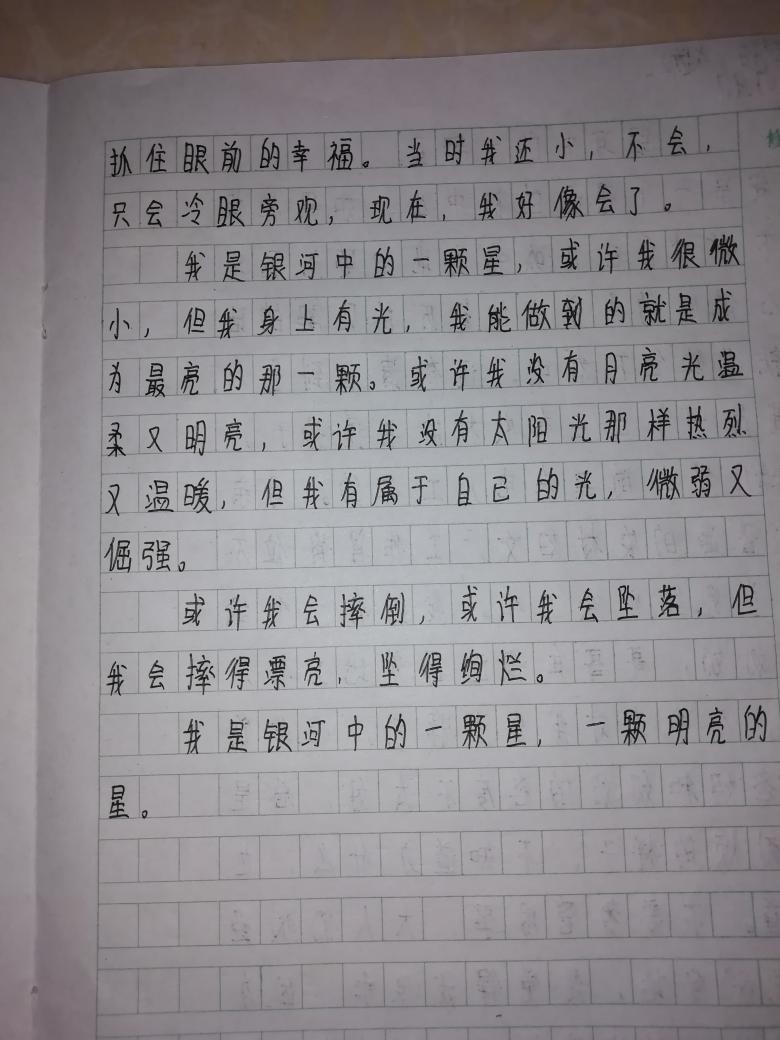 抓住眼前的幸福。当时我还小，不会，
只会冷眼旁观，现在，我好像会了。
我是银河中的一颗星，或许我很微
小，但我身上有光，我能做到的就是成
为最亮的那一颗。或许我没有月亮光温
柔又明亮，或许我没有太阳光那样热烈
又温暖，但我有属于自己的光，微弱又
倔强。
或许我会摔倒，或许我会坠落，但
我会摔得漂亮，坠得绚烂。
我是银河中的一颗星，一颗明亮的
星。